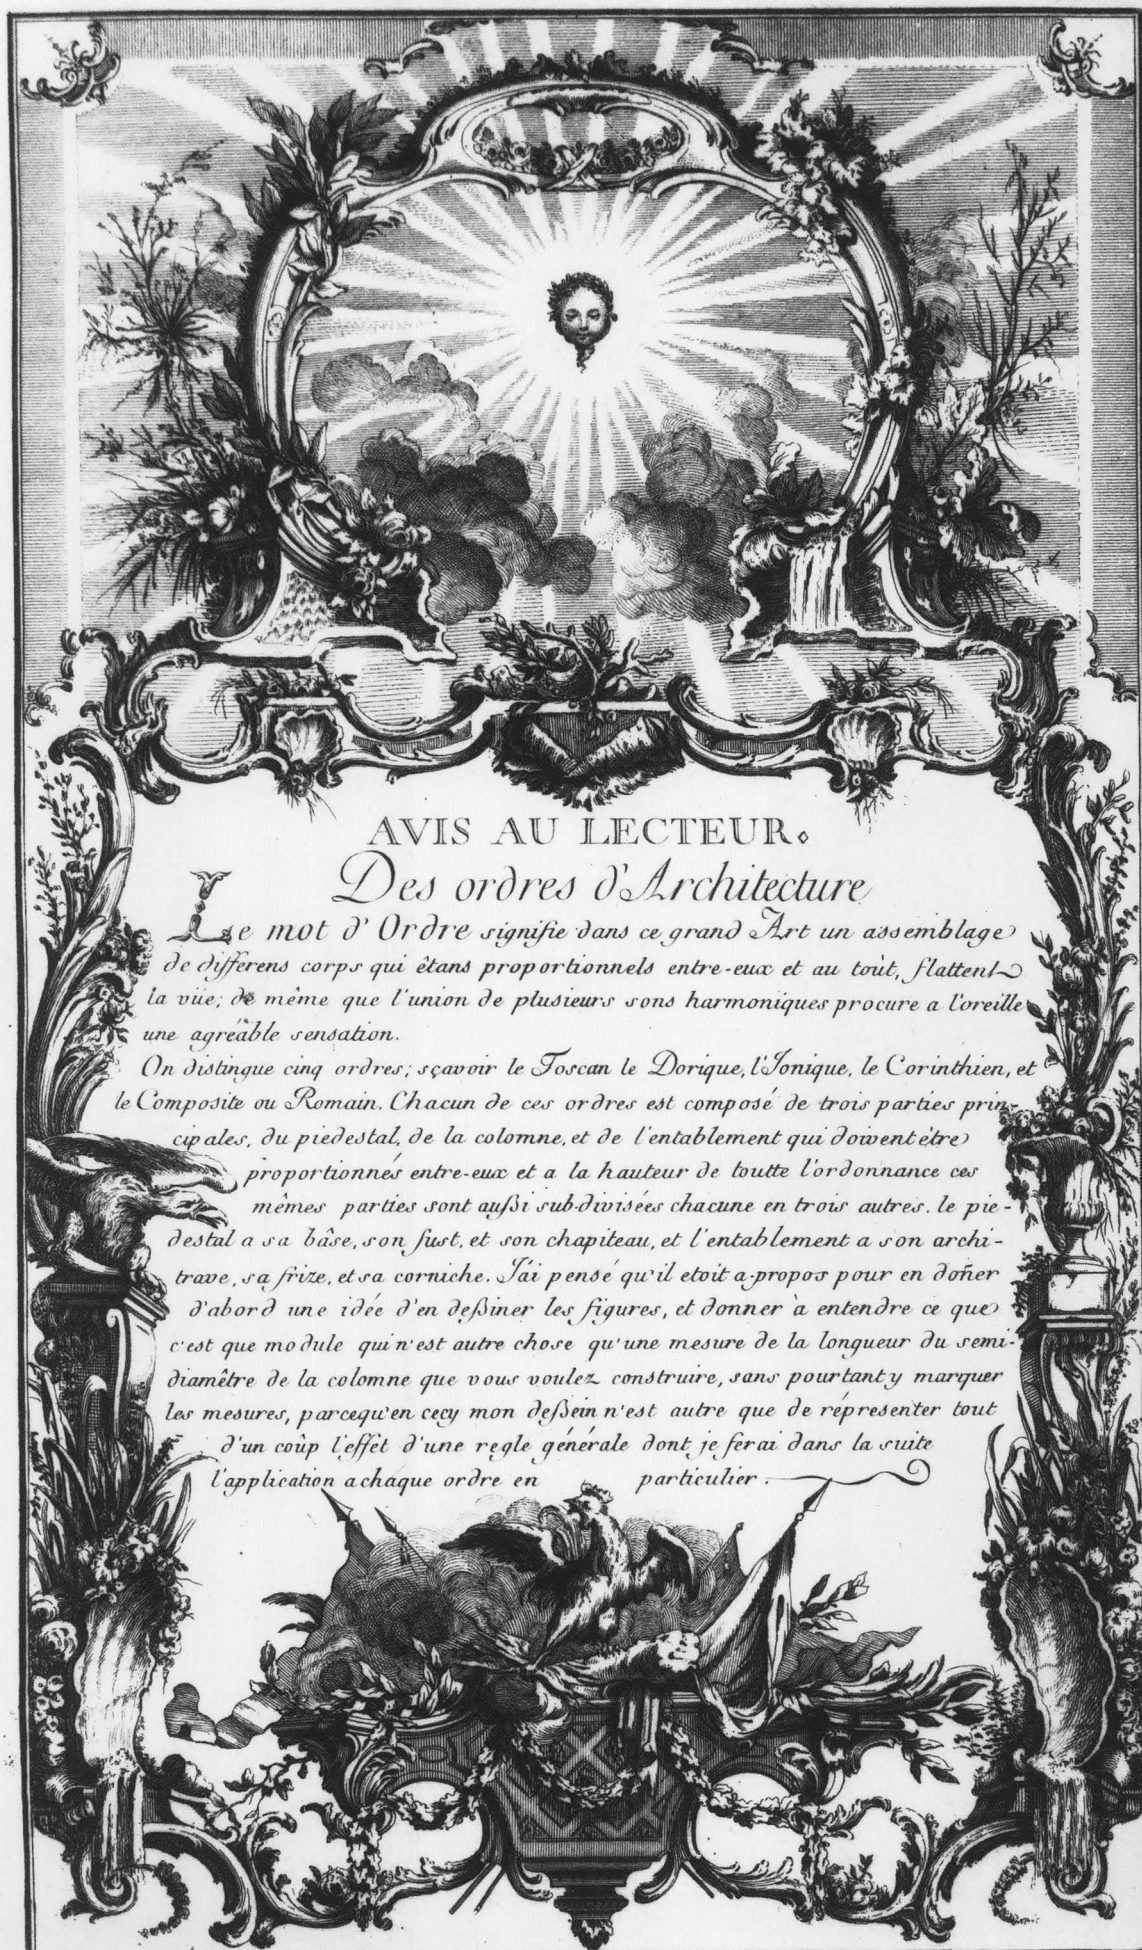 AVIS AU LECTEUR.
Des ordres d'Architecture
Le mot d'Ordre signifie dans ce grand Art un assemblage
de differens corps qui êtans proportionnels entre-eux et au toùt, flattent
la vüe; de même que l'union de plusieurs sons harmoniques procure a l'oreille
une agréable sensation.
On distingue cinq ordres; sçavoir le Toscan le Dorique, l'Ionique, le Corinthien, et
le Composite ou Romain. Chacun de ces ordres est composé de trois parties prin-
cipales, du piedestal, de la colomne, et de l'entablement qui doivent être
proportionnés entre-eux et a la hauteur de toutte l'ordonnance ces
mêmes parties sont außi sub-divisées chacune en trois autres. le pie-
destal a sa bâse, son fust, et son chapiteau, et l'entablement a son archi-
trave, sa frize, et sa corniche. J'ai pensé qu'il etoit a-propos pour en doñer
d'abord une idée d'en deßiner les figures, et donner à entendre ce que
c'est que module qui n'est autre chose qu'une mesure de la longueur du semi-
diamêtre de la colomne que vous voulez construire, sans pourtant y marquer
les mesures, parcequ'en cecy mon deßein n'est autre que de répresenter tout
d'un coûp l'effét d'une regle générale dont je ferai dans la suite
l'application a chaque ordre en particulier.